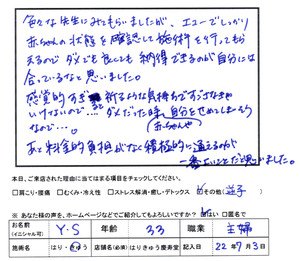 色々な先生にみてもらいましたが、エコーでしっかり
赤ちゃんの状態を確認して施術を行ってもら
えるので ダメでも良しでも納得できるのが自分には
合っているなと思いました。
感覚的すぎ 祈るような気持ちですごさなきゃ
いけないので… ダメだった時、自分をせめてしまう
なので…。(赤ちゃんや
あと料金的負担が少なく積極的に通えるのが
一番よいことだと思いました。
本日、ご来店された理由に当てはまる項目をチェックしてください。
□肩こり・腰痛 □むくみ・冷え性 □ストレス解消・癒し・デトックス ☑その他(逆子)
※ あなた様の声を、ホームページなどでご紹介してもよろしいですか? ☑はい □匿名で
お名前(イニシャル可) Y・S 年齢 33 職業 主婦
施術名 はり・きゅう 店舗名(必須) はりきゅう慶寿堂 記入日 22年7月3日